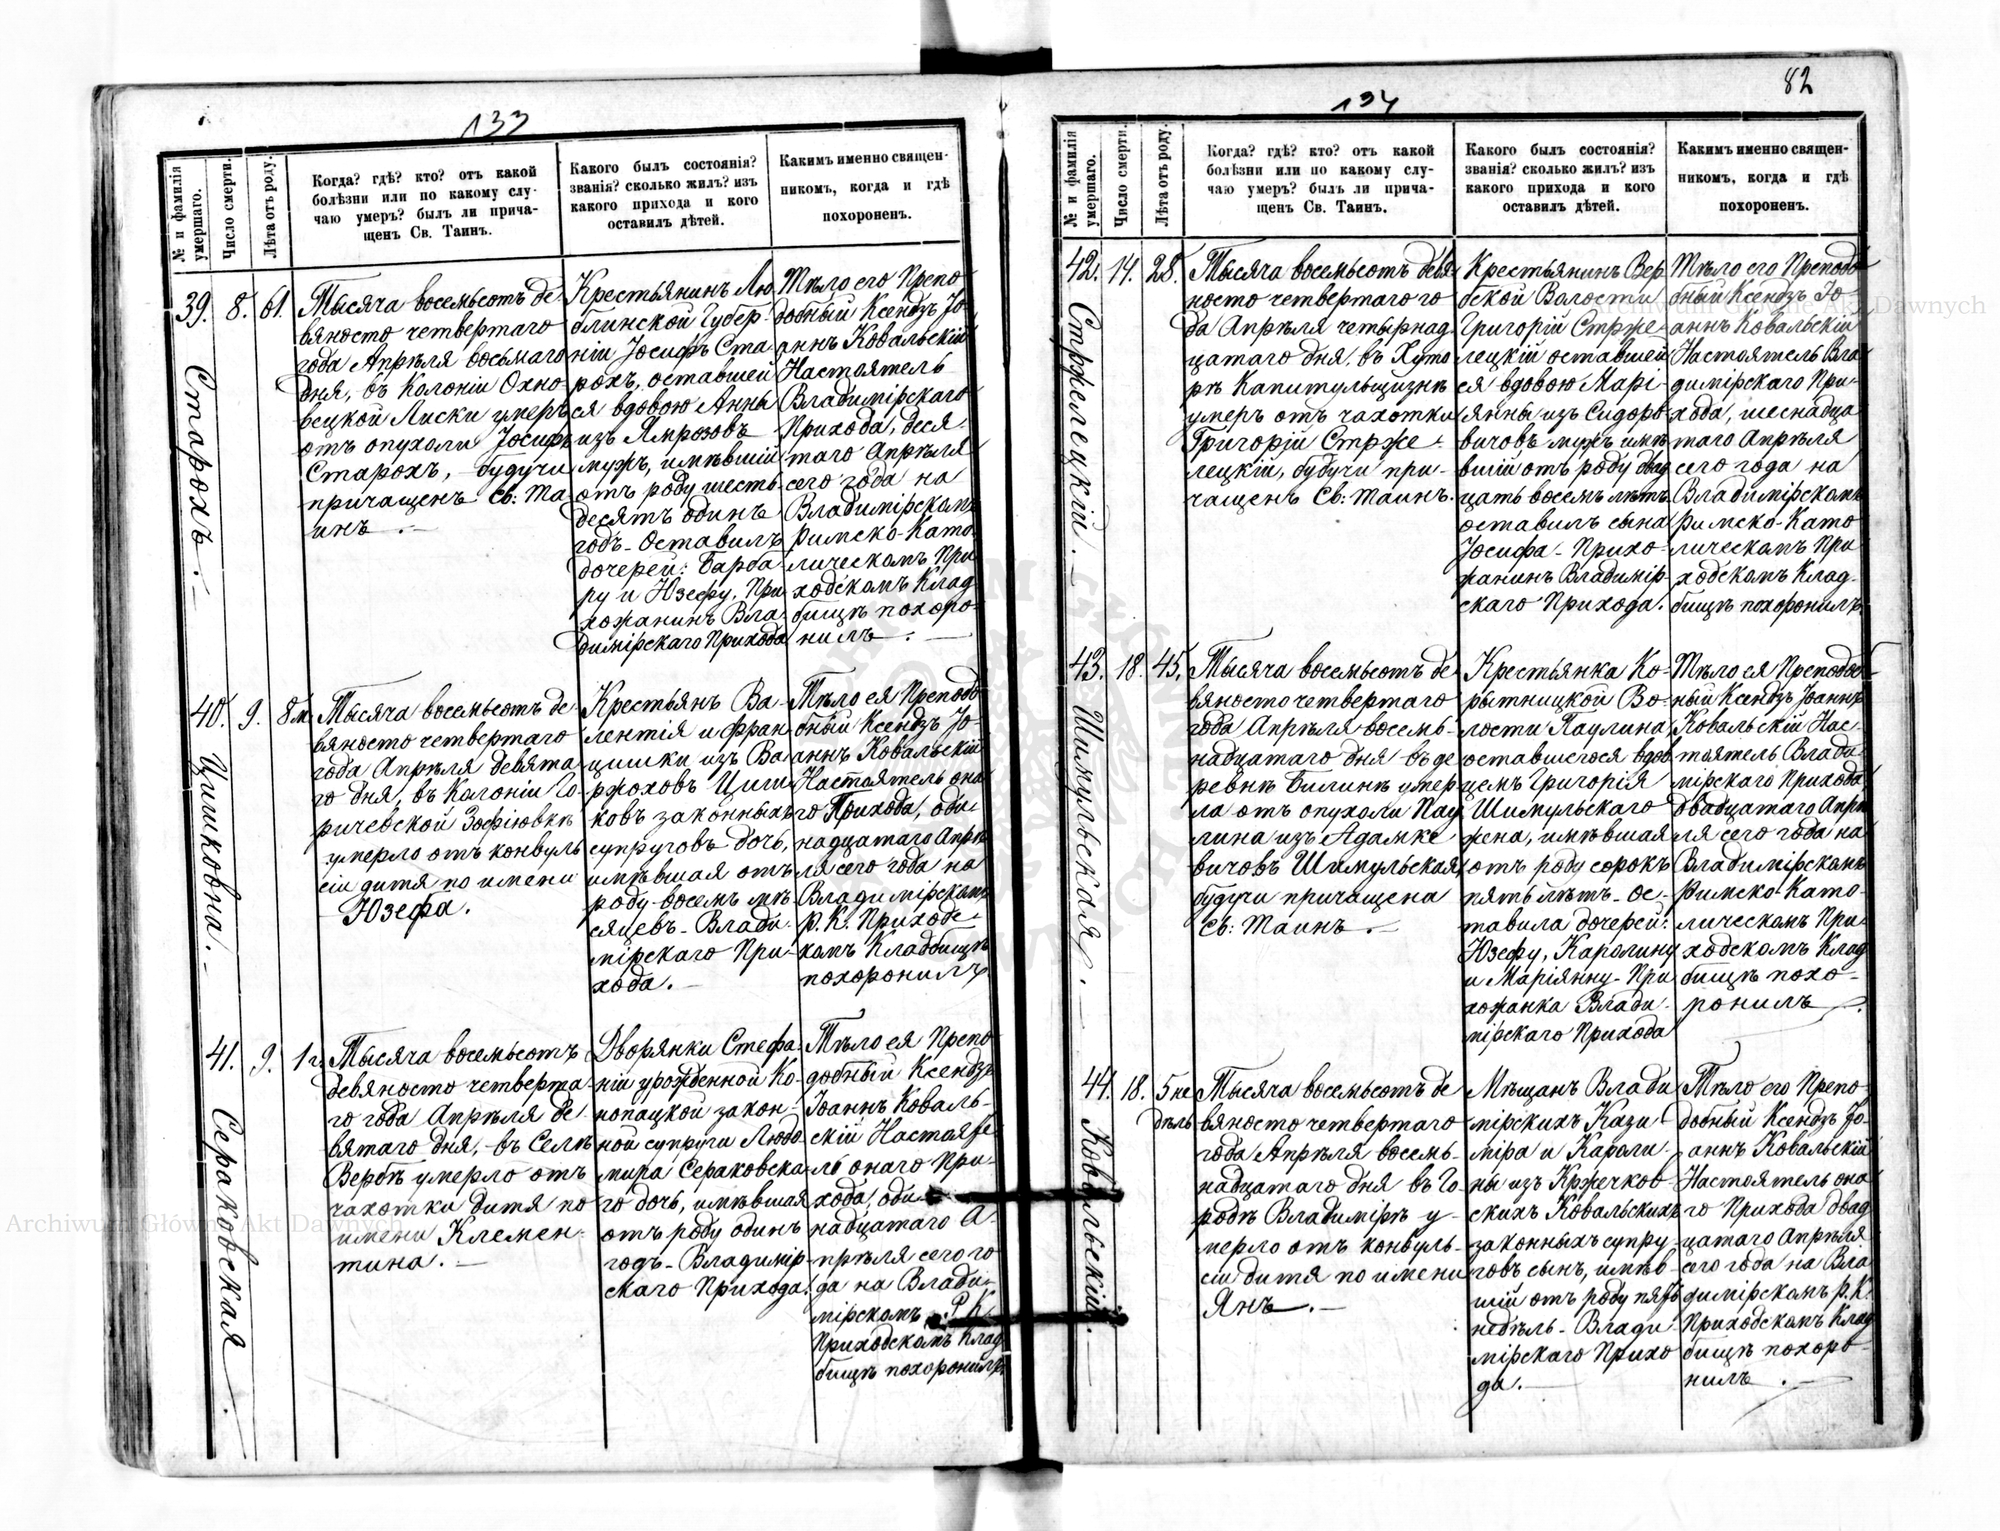 133
№ и фамилія умершаго.
Число смерти.
Лѣта отъ роду.
Когда? гдѣ? кто? отъ какой
болѣзни или по какому слу-
чаю умеръ? былъ ли прича-
щенъ Св. Таинъ.
Какого былъ состоянія?
званія? сколько жилъ? изъ
какого прихода и кого
оставилъ дѣтей.
Какимъ именно священ-
никомъ, когда и гдѣ
похороненъ.
39. 8. 61.
Старохъ.
Тысяча восемьсотъ де-
вяносто четвертаго
года Апрѣля восьмаго
дня, въ Колоніи Охно-
вецкой Лиски умеръ
отъ опухоли Іосифъ
Старохъ, будучи
причащенъ Св: Та-
инъ.
Крестьянинъ Лю-
блинской Губер-
ніи Іосифъ Ста-
рохъ, оставшей
ся вдовою Анны
изъ Ямрозовъ
мужъ, имѣвшій
отъ роду шесть-
десятъ одинъ
годъ - Оставилъ
дочерей: Барба-
ру и Юзефу, При
хожанинъ Вла-
димірскаго Прихода
Тѣло его Препо-
добный Ксендзъ Іо-
аннъ Ковальскій
Настоятель
Владимірскаго
Прихода, деся-
таго Апрѣля
сего года на
Владимірскомъ
Римско-Като-
лическомъ При
ходскомъ Клад
бищѣ похоро-
нилъ.
40. 9. 8 м.
Цишковна.
Тысяча восемьсотъ де-
вяносто четвертаго
года Апрѣля девята
го дня, въ Колоніи Го-
ричевской Зофіювкѣ
умерло отъ конвуль
сіи дитя по имени
Юзефа.
Крестьянъ Ва-
лентія и Фран
цишки изъ Ва-
рфоховъ Циш
ковъ законныхъ
супруговъ дочь,
имѣвшая отъ
роду восемь мѣ-
сяцевъ - Влади-
мірскаго При-
хода.
Тѣло ея Преподо-
бный Ксендзъ Іо-
аннъ Ковальскій
Настоятель она
го Прихода, оди-
надцатаго Апрѣ
ля сего года на
Владимірскомъ
Р. К. Приходс-
комъ Кладбищѣ
похоронилъ
41. 9. 1 г.
Сераковская.
Тысяча восемьсотъ
девяносто четверта-
го года Апрѣля де-
вятаго дня, въ Селѣ
Вербѣ умерло отъ
чахотки дитя по
имени Клемен-
тина.
Дворянки Стефа-
ніи урожденной Ко-
нопацкой закон-
ной супруги Людо
мира Сераковска-
го дочь, имѣвшая
отъ роду одинъ
годъ - Владимір-
скаго Прихода.
Тѣло ея Препо-
добный Ксендзъ
Іоаннъ Коваль-
скій Настояте
ль онаго При-
хода, оди-
надцатаго А-
прѣля сего го
да на Влади-
мірскомъ Р. К.
Приходскомъ Клад
бищѣ похоронилъ
134
82
№ и фамилія умершаго.
Число смерти.
Лѣта отъ роду.
Когда? гдѣ? кто? отъ какой
болѣзни или по какому слу-
чаю умеръ? былъ ли прича-
щенъ Св. Таинъ.
Какого былъ состоянія?
званія? сколько жилъ? изъ
какого прихода и кого
оставилъ дѣтей.
Какимъ именно священ-
никомъ, когда и гдѣ
похороненъ.
42. 14. 28.
Стржелецкій.
Тысяча восемьсотъ девя-
носто четвертаго го
да Апрѣля четырнад
цатаго дня, въ Хуто
рѣ Капитульщизнѣ
умеръ отъ чахотки
Григорій Стрже-
лецкій, будучи при-
чащенъ Св: Таинъ.
Крестьянинъ Вер
бской Волости
Григорій Стрже-
лецкій оставшей
ся вдовою Марі-
янны изъ Сидоро
вичовъ мужъ имѣ
вшій отъ роду двад
цать восемь лѣтъ
оставилъ сына
Іосифа - Прихо-
жанинъ Владимір-
скаго Прихода.
Тѣло его Преподо-
бный Ксендзъ Іо-
аннъ Ковальскій
Настоятель Вла-
димірскаго При-
хода, шеснадца
таго Апрѣля
сего года на
Владимірскомъ
Римско-Като
лическомъ При
ходскомъ Клад-
бищѣ похоронилъ
43. 18. 45.
Шимульская.
Тысяча восемьсотъ де-
вяносто четвертаго
года Апрѣля восемь-
надцатаго дня въ де
ревнѣ Билинѣ умер
ла отъ опухоли Пау
лина изъ Адамке-
вичовъ Шимульская,
будучи причащена
Св: Таинъ.
Крестьянка Ко-
рытницкой Во-
лости Паулина
оставшегося вдов
цемъ Григорія
Шимульскаго
жена, имѣвшая
отъ роду сорокъ
пять лѣтъ - Ос-
тавила дочерей:
Юзефу, Каролину
и Маріянну - При
хожанка Влади-
мірскаго Прихода
Тѣло ея Преподоб-
ный Ксендзъ Іоаннъ
Ковальскій Нас-
тоятель Влади
мірскаго Прихода
двадцатаго Апрѣ
ля сего года на
Владимірскомъ
Римско-Като-
лическомъ При-
ходскомъ Клад
бищѣ похо-
ронилъ.
44. 18. 5 не
дѣль
Ковальскій.
Тысяча восемьсотъ де
вяносто четвертаго
года Апрѣля восемь-
надцатаго дня въ Го-
родѣ Владимірѣ у-
мерло отъ конвуль-
сіи дитя по имени
Янъ.
Мѣщанъ Влади
мірскихъ Кази-
міра и Кароли-
ны изъ Кржечков-
скихъ Ковальскихъ
законныхъ супру
говъ сынъ, имѣв-
шій отъ роду пять
недѣль - Влади-
мірскаго Прихо
да.
Тѣло его Препо-
добный Ксендзъ Іо-
аннъ Ковальскій
Настоятель она
го Прихода двад
цатаго Апрѣля
сего года на Вла
димірскомъ Р. К.
Приходскомъ Клад
бищѣ похоро-
нилъ.
Archiwum Główne Akt Dawnych
Archiwum Główne Akt Dawnych